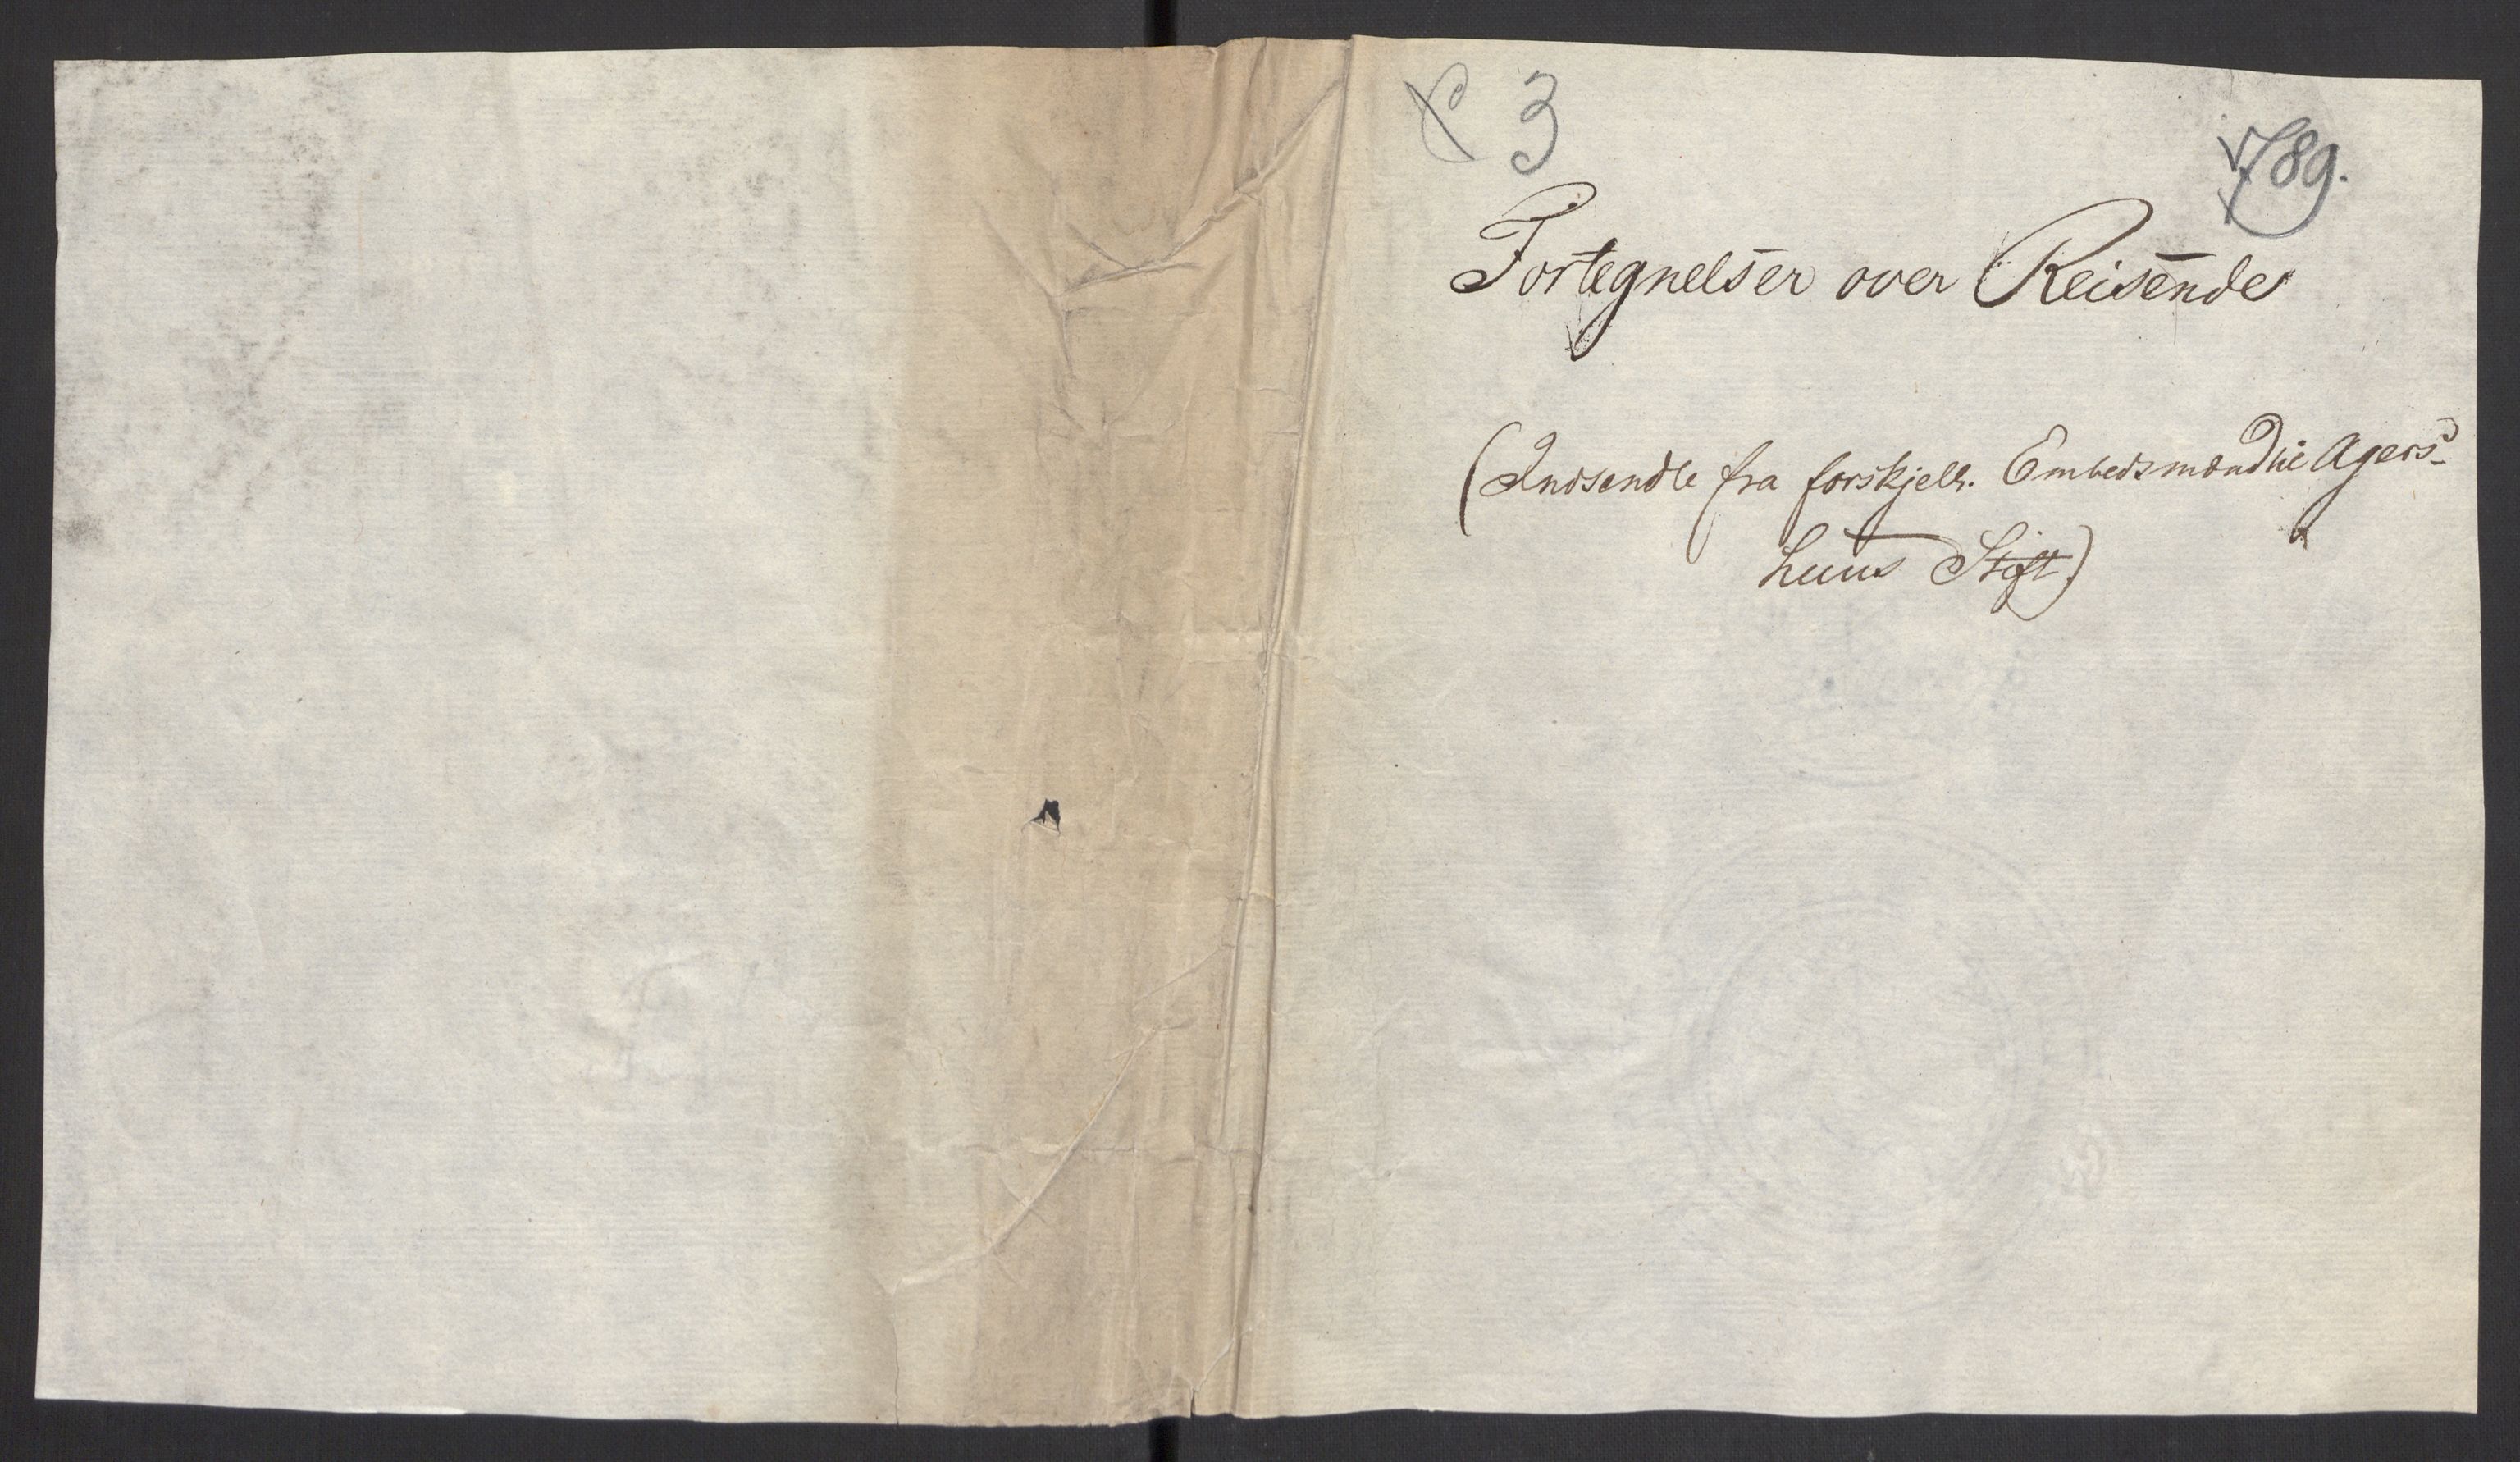 3
789.
Fortegnelser over Reisende
(Indsendte fra forskjell. Embedsmænd i Agers-
huus Stift)